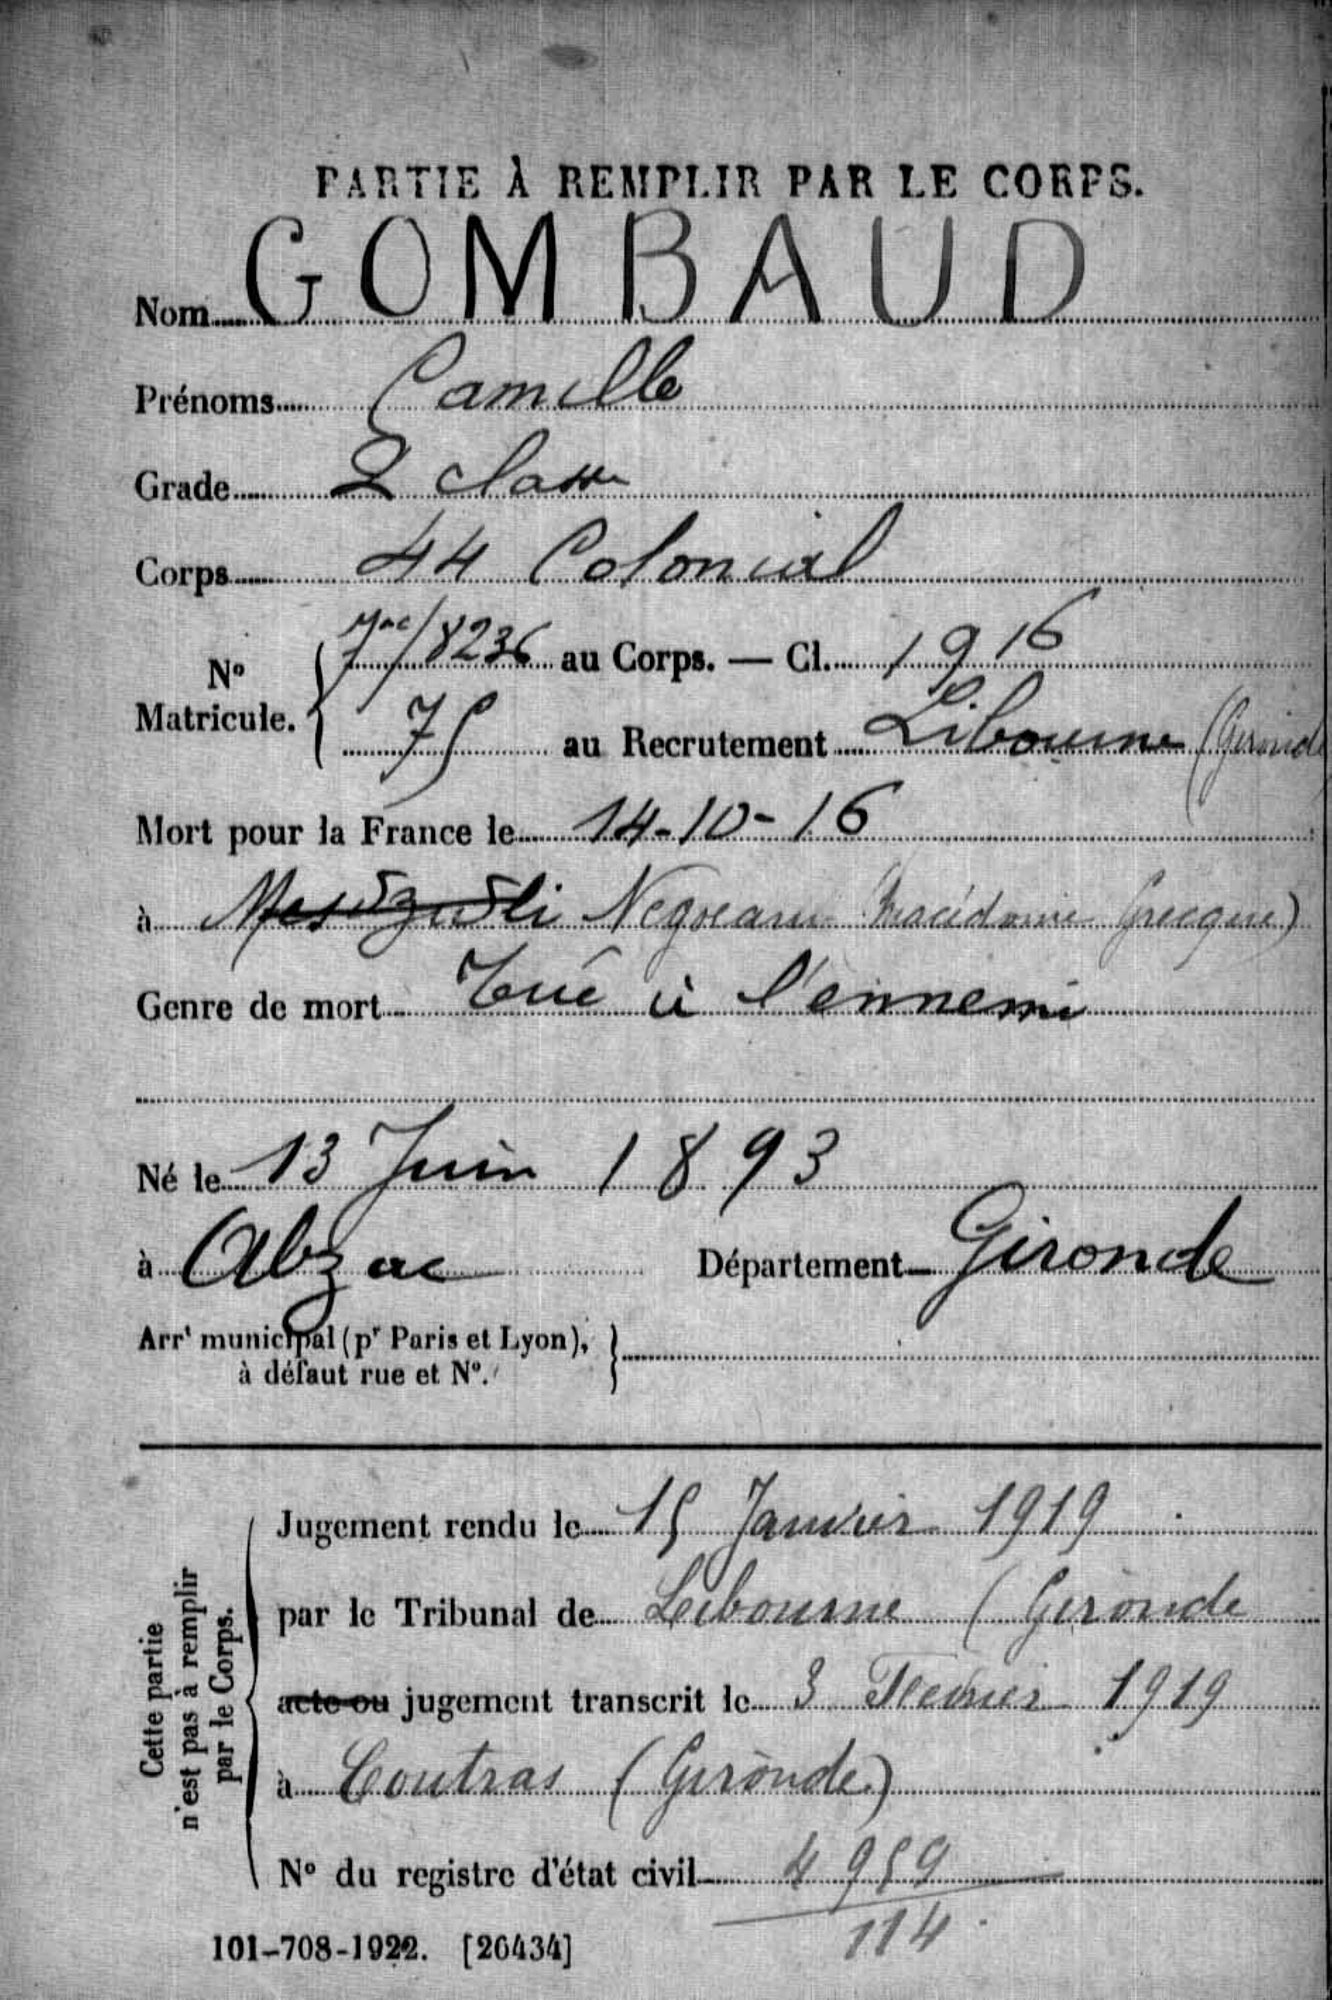 PARTIE À REMPLIR PAR LE CORPS.
Nom GOMBAUD
Prénoms Camille
Grade 2 classe
Corps 44 Colonial
No Matricule. 7me/8236 au Corps. — Cl. 1916
75 au Recrutement Libourne (Gironde
Mort pour la France le 14-10-16
à Negreani Macédoine Grecque)
Genre de mort Tué à l'ennemi
Né le 13 Juin 1893
à Abzac Département Gironde
Arrt municipal (pr Paris et Lyon),
à défaut rue et No.
Cette partie
n'est pas à remplir
par le Corps.
Jugement rendu le 15 Janvier 1919
par le Tribunal de Libourne (Gironde
acte ou jugement transcrit le 3 Fevrier 1919
à Coutras (Gironde)
No du registre d'état civil 4959
114
101-708-1922. [26434]